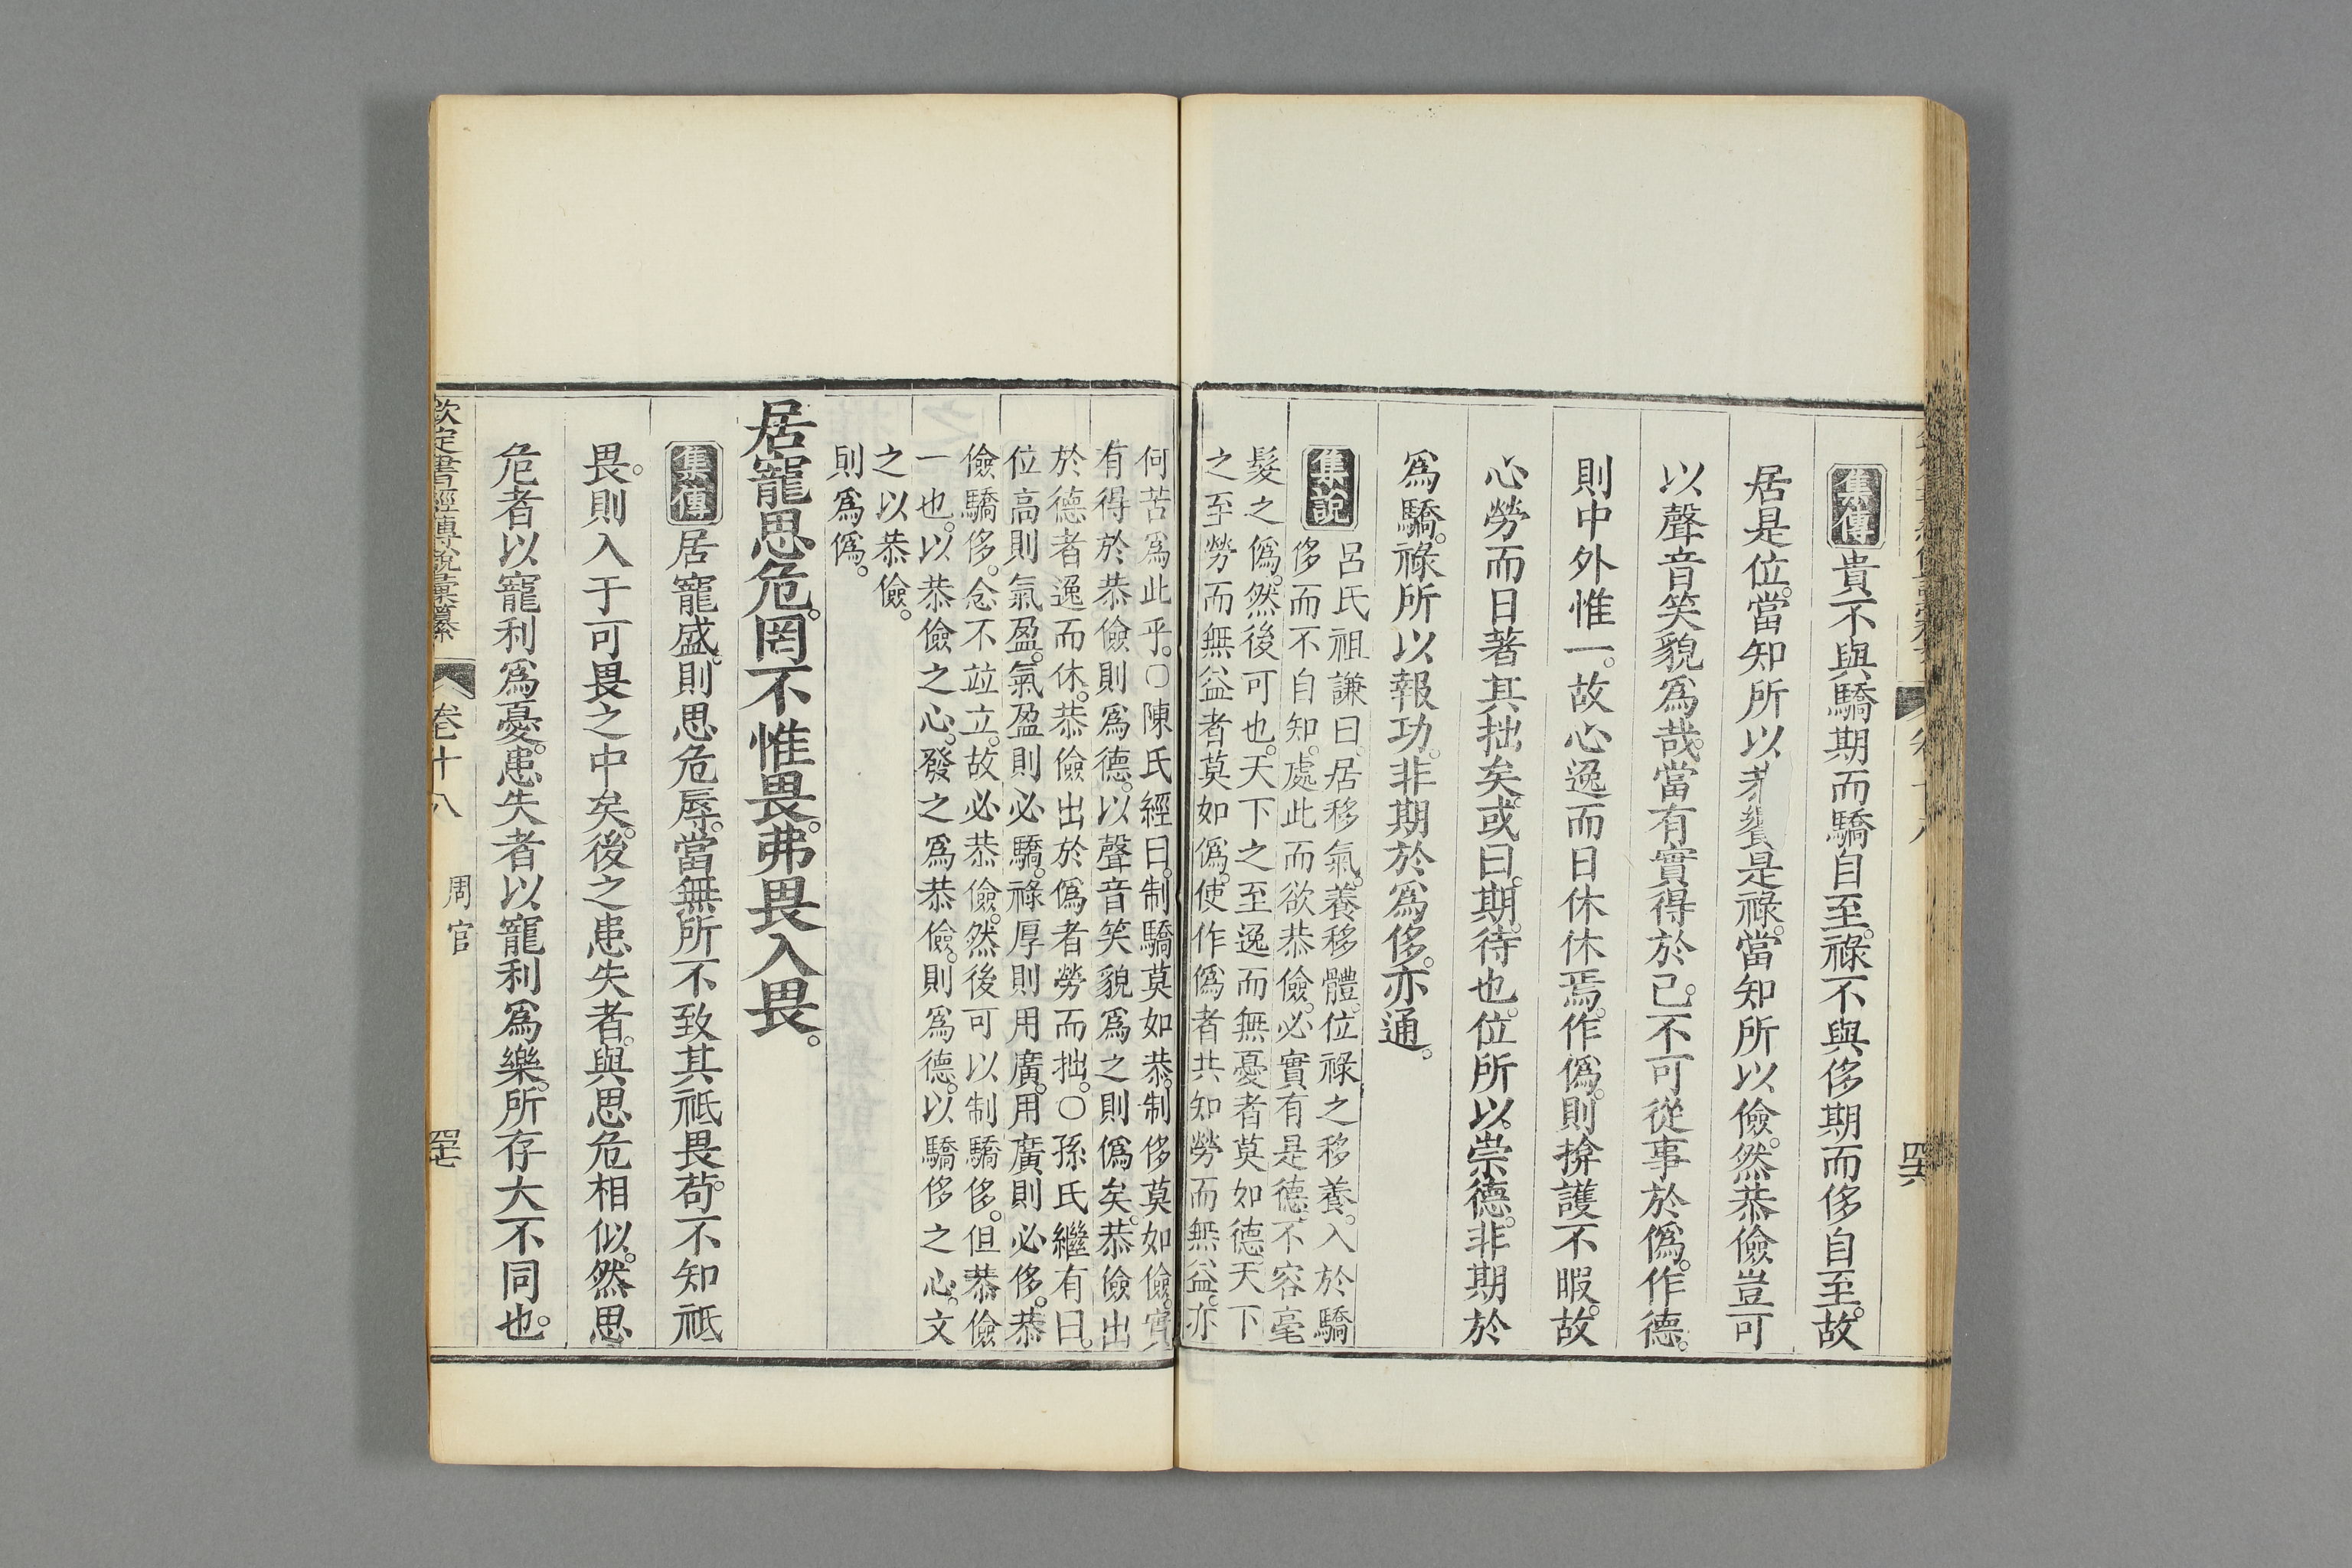 集傳貴不與驕期而驕自至。祿不與侈期而侈自至。故
居是位。當知所以饗是祿。當知所以儉。然恭儉豈可
以聲音笑貌爲哉。當有實得於己。不可從事於僞。作德。
則中外惟一。故心逸而日休休焉。作僞。則揜護不暇。故
心勞而日著其拙矣。或曰。期。待也。位所以崇德。非期於
爲驕。祿所以報功。非期於爲侈。亦通。
集說
呂氏祖謙曰。居移氣。養移體。位祿之移養。入於驕
侈而不自知。處此而欲恭儉。必實有是德。不容毫
髮之僞。然後可也。天下之至逸而無憂者莫如德。天下
之至勞而無益者莫如僞。使作僞者共知勞而無益。亦
何苦爲此乎。○陳氏經曰。制驕莫如恭。制侈莫如儉。實
有得於恭儉則爲德。以聲音笑貌爲之則僞矣。恭儉出
於德者逸而休。恭儉出於僞者勞而拙。○孫氏繼有曰。
位高則氣盈。氣盈則必驕。祿厚則用廣。用廣則必侈。恭
儉驕侈。念不竝立。故必恭儉。然後可以制驕侈。但恭儉
一也。以恭儉之心。發之爲恭儉。則爲德。以驕侈之心。文
之以恭儉。
則爲僞。
居寵思危。罔不惟畏。弗畏入畏。
集傳居寵盛。則思危辱。當無所不致其祗畏。苟不知祗
畏。則入于可畏之中矣。後之患失者。與思危相似。然思
危者以寵利爲憂。患失者以寵利爲樂。所存大不同也。
欽定書經傳說彙纂 卷十八 周官 四十七